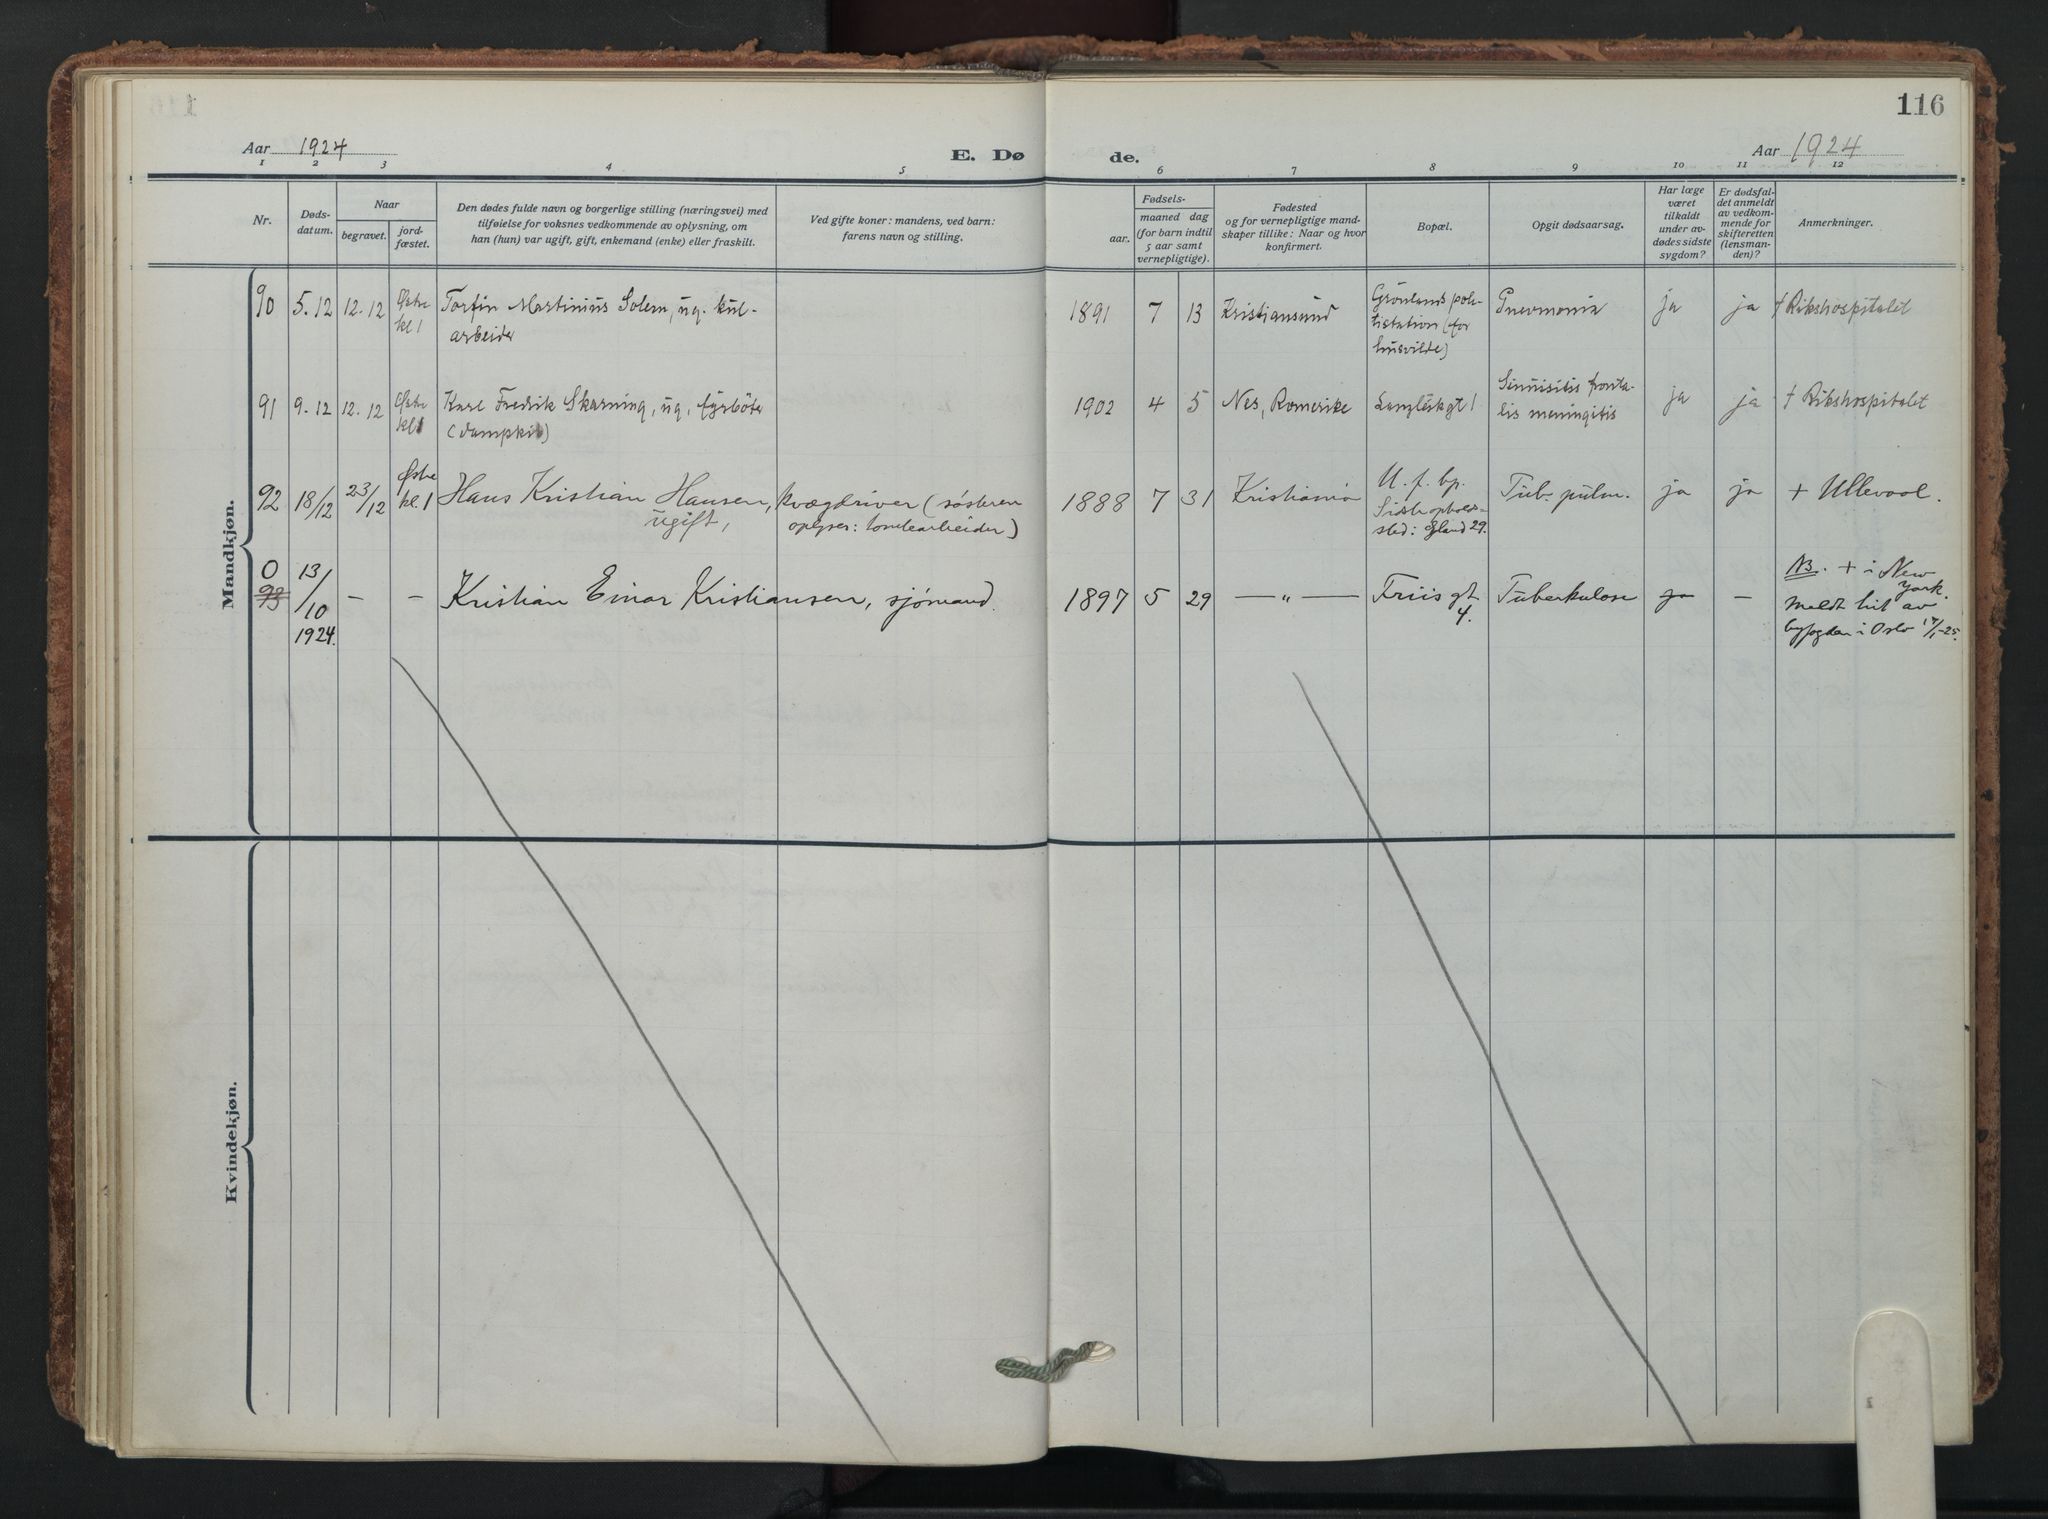 116
Aar 1924
E. Dø
de.
Aar 1924
1 2 3 4 5 6 7 8 9 10 11 12
Nr.
Døds-
datum.
Naar
begravet.
jord-
fæstet.
Den dødes fulde navn og borgerlige stilling (næringsvei) med
tilføielse for voksnes vedkommende av oplysning, om
han (hun) var ugift, gift, enkemand (enke) eller fraskilt.
Ved gifte koner: mandens, ved barn:
farens navn og stilling.
Fødsels-
aar.
maaned dag
(for barn indtil
5 aar samt
vernepligtige).
Fødested
og for vernepligtige mand-
skaper tillike: Naar og hvor
konfirmert.
Bopæl.
Opgit dødsaarsag.
Har læge
været
tilkaldt
under av-
dødes sidste
sygdom?
Er dødsfal-
det anmeldt
av vedkom-
mende for
skifteretten
(lensman-
den)?
Anmerkninger.
Mandkjøn.
90 5.12 12.12 Østre
kl 1
Torfin Martinius Solem, ug. kul-
arbeider
1891 7 13 Kristiansund
Grønlands poli-
tistation (for
husvilde)
Pnevmonia ja ja † Rikshospitalet
91 9.12 12.12 Østre
kl 1
Karl Fredrik Skarning, ug, fyrbøter
(dampkil)
1902 4 5 Nes, Romerike
Sinuisitis fronta-
lis meningitis
ja ja † Rikshospitalet
92 18/12 23/12 Østre
kl. 1
Hans Kristian Hansen, kvægdriver (søsteren
ugift, oplyser: tomtearbeider)
1888 7 31 Kristiania
U. f. bp.
Sidste opholds-
sted: Grland 29.
Tub. pulm. ja ja + Ullevaal.
0
93
13/10
1924.
— — Kristian Einar Kristiansen, sjømand.
1897 5 29 — „ —
Friis gt.
4.
Tuberkulose ja —
NB. + i New
York.
Meldt hit av
byfogden i Oslo 17/1-25.
Kvindekjøn.